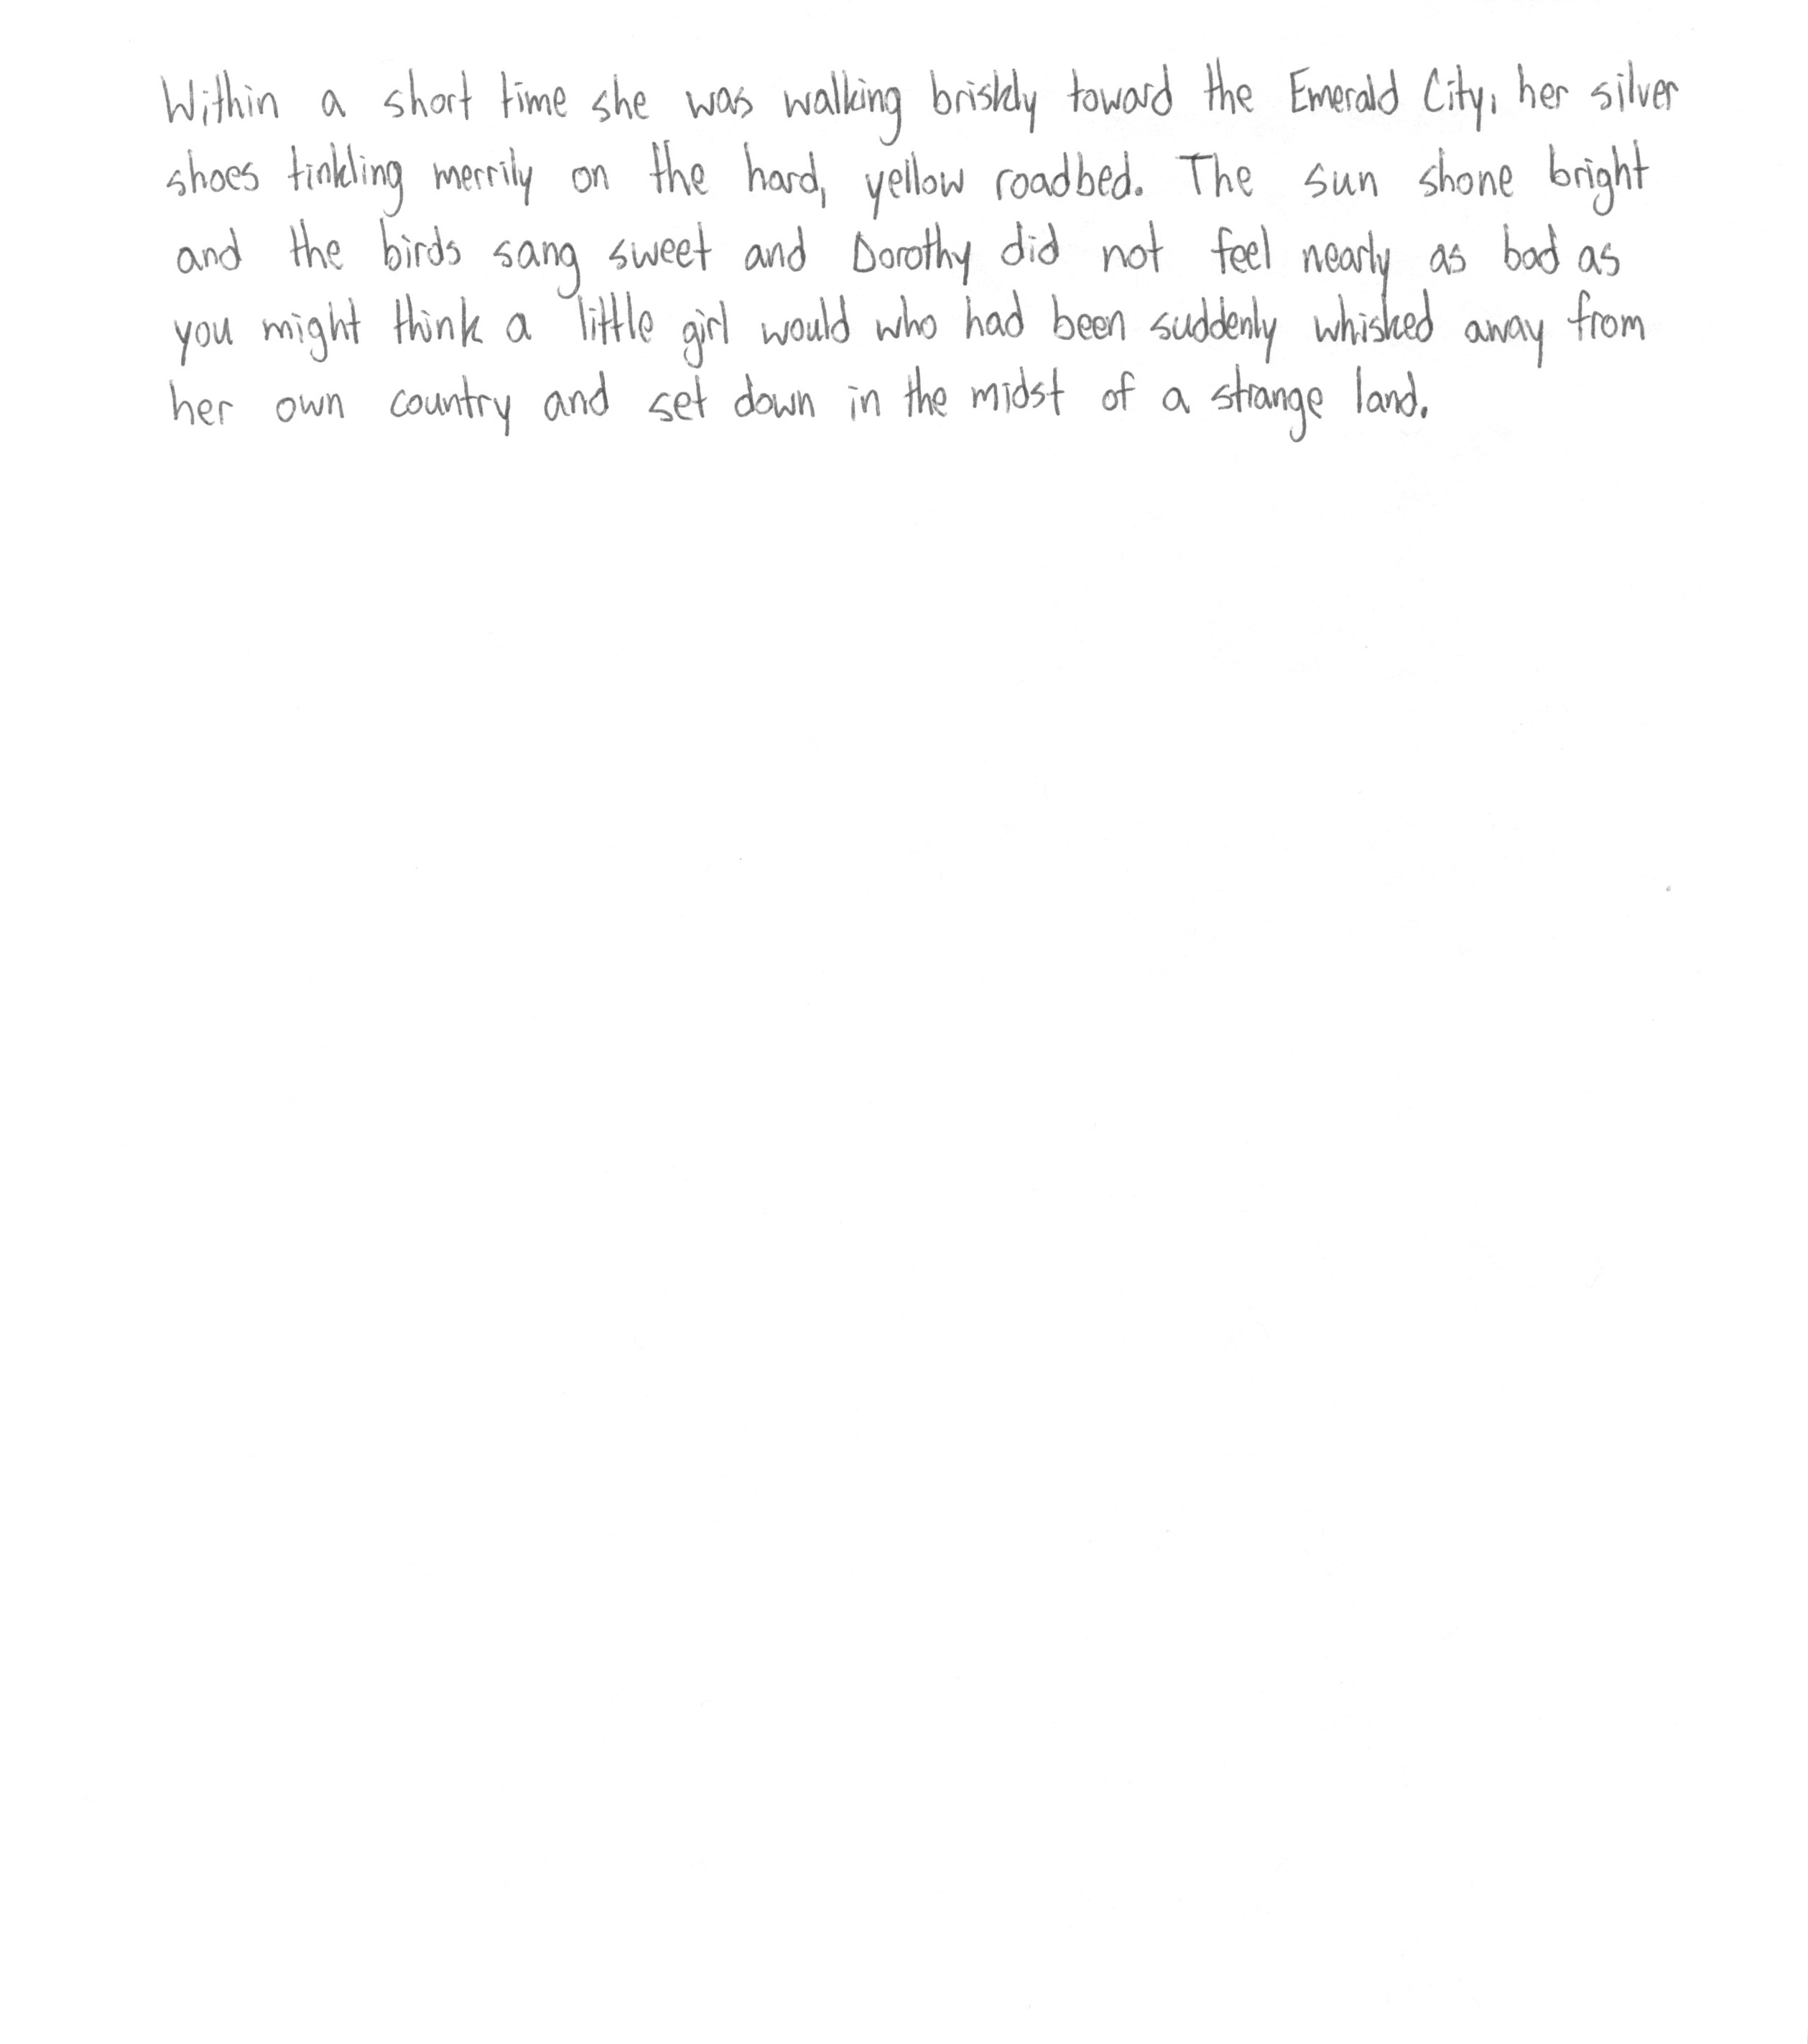 Within a short time she was walking briskly toward the Emerald City, her silver
shoes tinkling merrily on the hard, yellow roadbed. The sun shone bright
and the birds sang sweet and Dorothy did not feel nearly as bad as
you might think a little girl would who had been suddenly whisked away from
her own country and set down in the midst of a strange land.